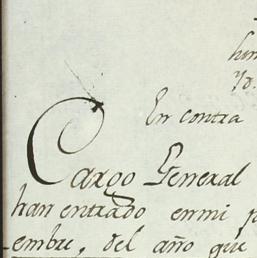 En contra
Cargo General
han entrado en mi
embre, del año que